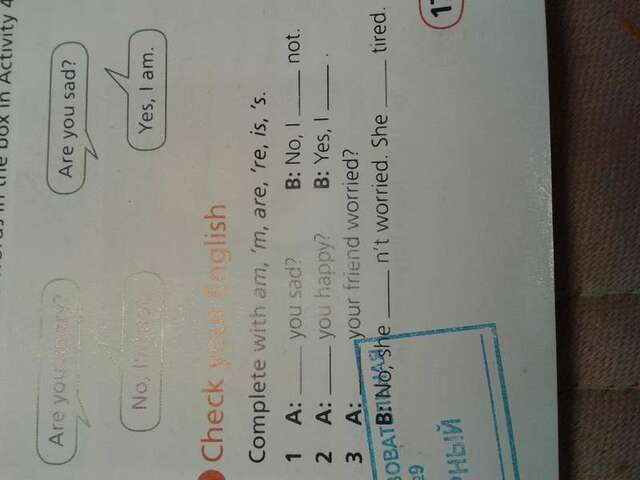 words in the box in Activity 4
Are you angry?
Are you sad?
No, I'm not.
Yes, I am.
Check your English
Complete with am, 'm, are, 're, is, 's.
1 A: _____ you sad? B: No, I _____ not.
2 A: _____ you happy? B: Yes, I _____ .
3 A: _____ your friend worried?
B: No, she _____ n't worried. She _____ tired.
ЗОВАТЕЛЬНАЯ
№9
РНЫЙ
17